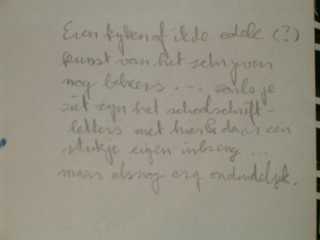 Even kijken of ik de edele (?)
kunst van het schrijven
nog beheers ... zoals je
ziet zijn het schoolschrift-
letters met hier & daar een
stukje eigen inbreng ...
maar alsnog erg onduidelijk.